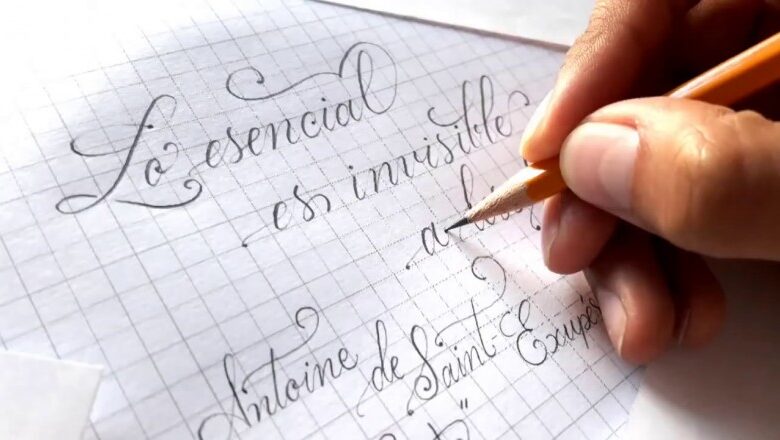 Lo esencial
es invisible
a los
Antoine de Saint-Exupér